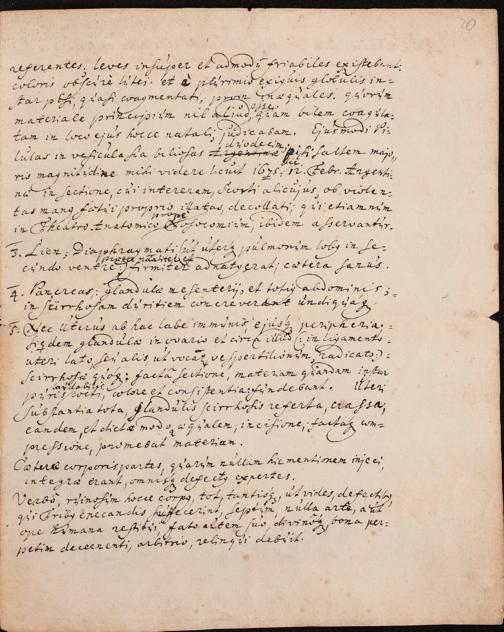 20
referentes. leves insuper et admodū friabiles existebant:
coloris obscure lutei. et è plurimis exiguis globulis in-
star pisi, quasi coagmentati; proin inaequales. quorum
materiale principium nil aliud esse, quam bilem coagula-
tam in loco ejus hocce natali, judicabam. Ejusmodi Pi-
lulas in vesicula sua biliosas duodecim, nisi saltem majo-
ris magnitudine mihi videre licuit 1675, 12. Febr. Argenti-
nae in sectione, cui intereram, Scorti alicujus, ob violen-
tas manus foetui proprio illatas, decollati; qui etiamnum
in Theatro Anatomico prope Nosocomium, ibidem asservantur.
3. Lien; Diaphragmati sub uterque pulmonum lobus in se-
cundo ventre, firmiter adnatus erat; caetera sanus.
4. Pancreas; glandulae mesenterii, et totius abdominis;
in scirrhosam duritiem concreverant undiquaque.
5. Nec Uterus ab hac labe immunis, ejusque peripheria;
Siquidem glandulae in ovario et circa illud (: in ligamento
uteri lato seu alis, ut vocant, vespertilionum, radicato:)
scirrhosae quoque: facta sectione, materiam quandam instar
pultis cocti, colore et consistentia; fundebant. Uteri
substantia tota, glandulis scirrhosis referta, crassa,
eandem, et dicto modo aequalem, incisione, factaque com-
pressione, promebat materiam.
Caeterae corporis partes, quarum nullam hic mentionem injeci,
integrae erant, omnisque defectus expertes.
Verbo, ruinosum hocce corpus, tot, tantisque, ut vides, defectibus
qui Tribus enecandis sufficerint, septum, nulla arte, aut
ope humana restitui, fato autem suo, divinoque bona per-
petim decernenti, arbitrio, relinqui debuit.